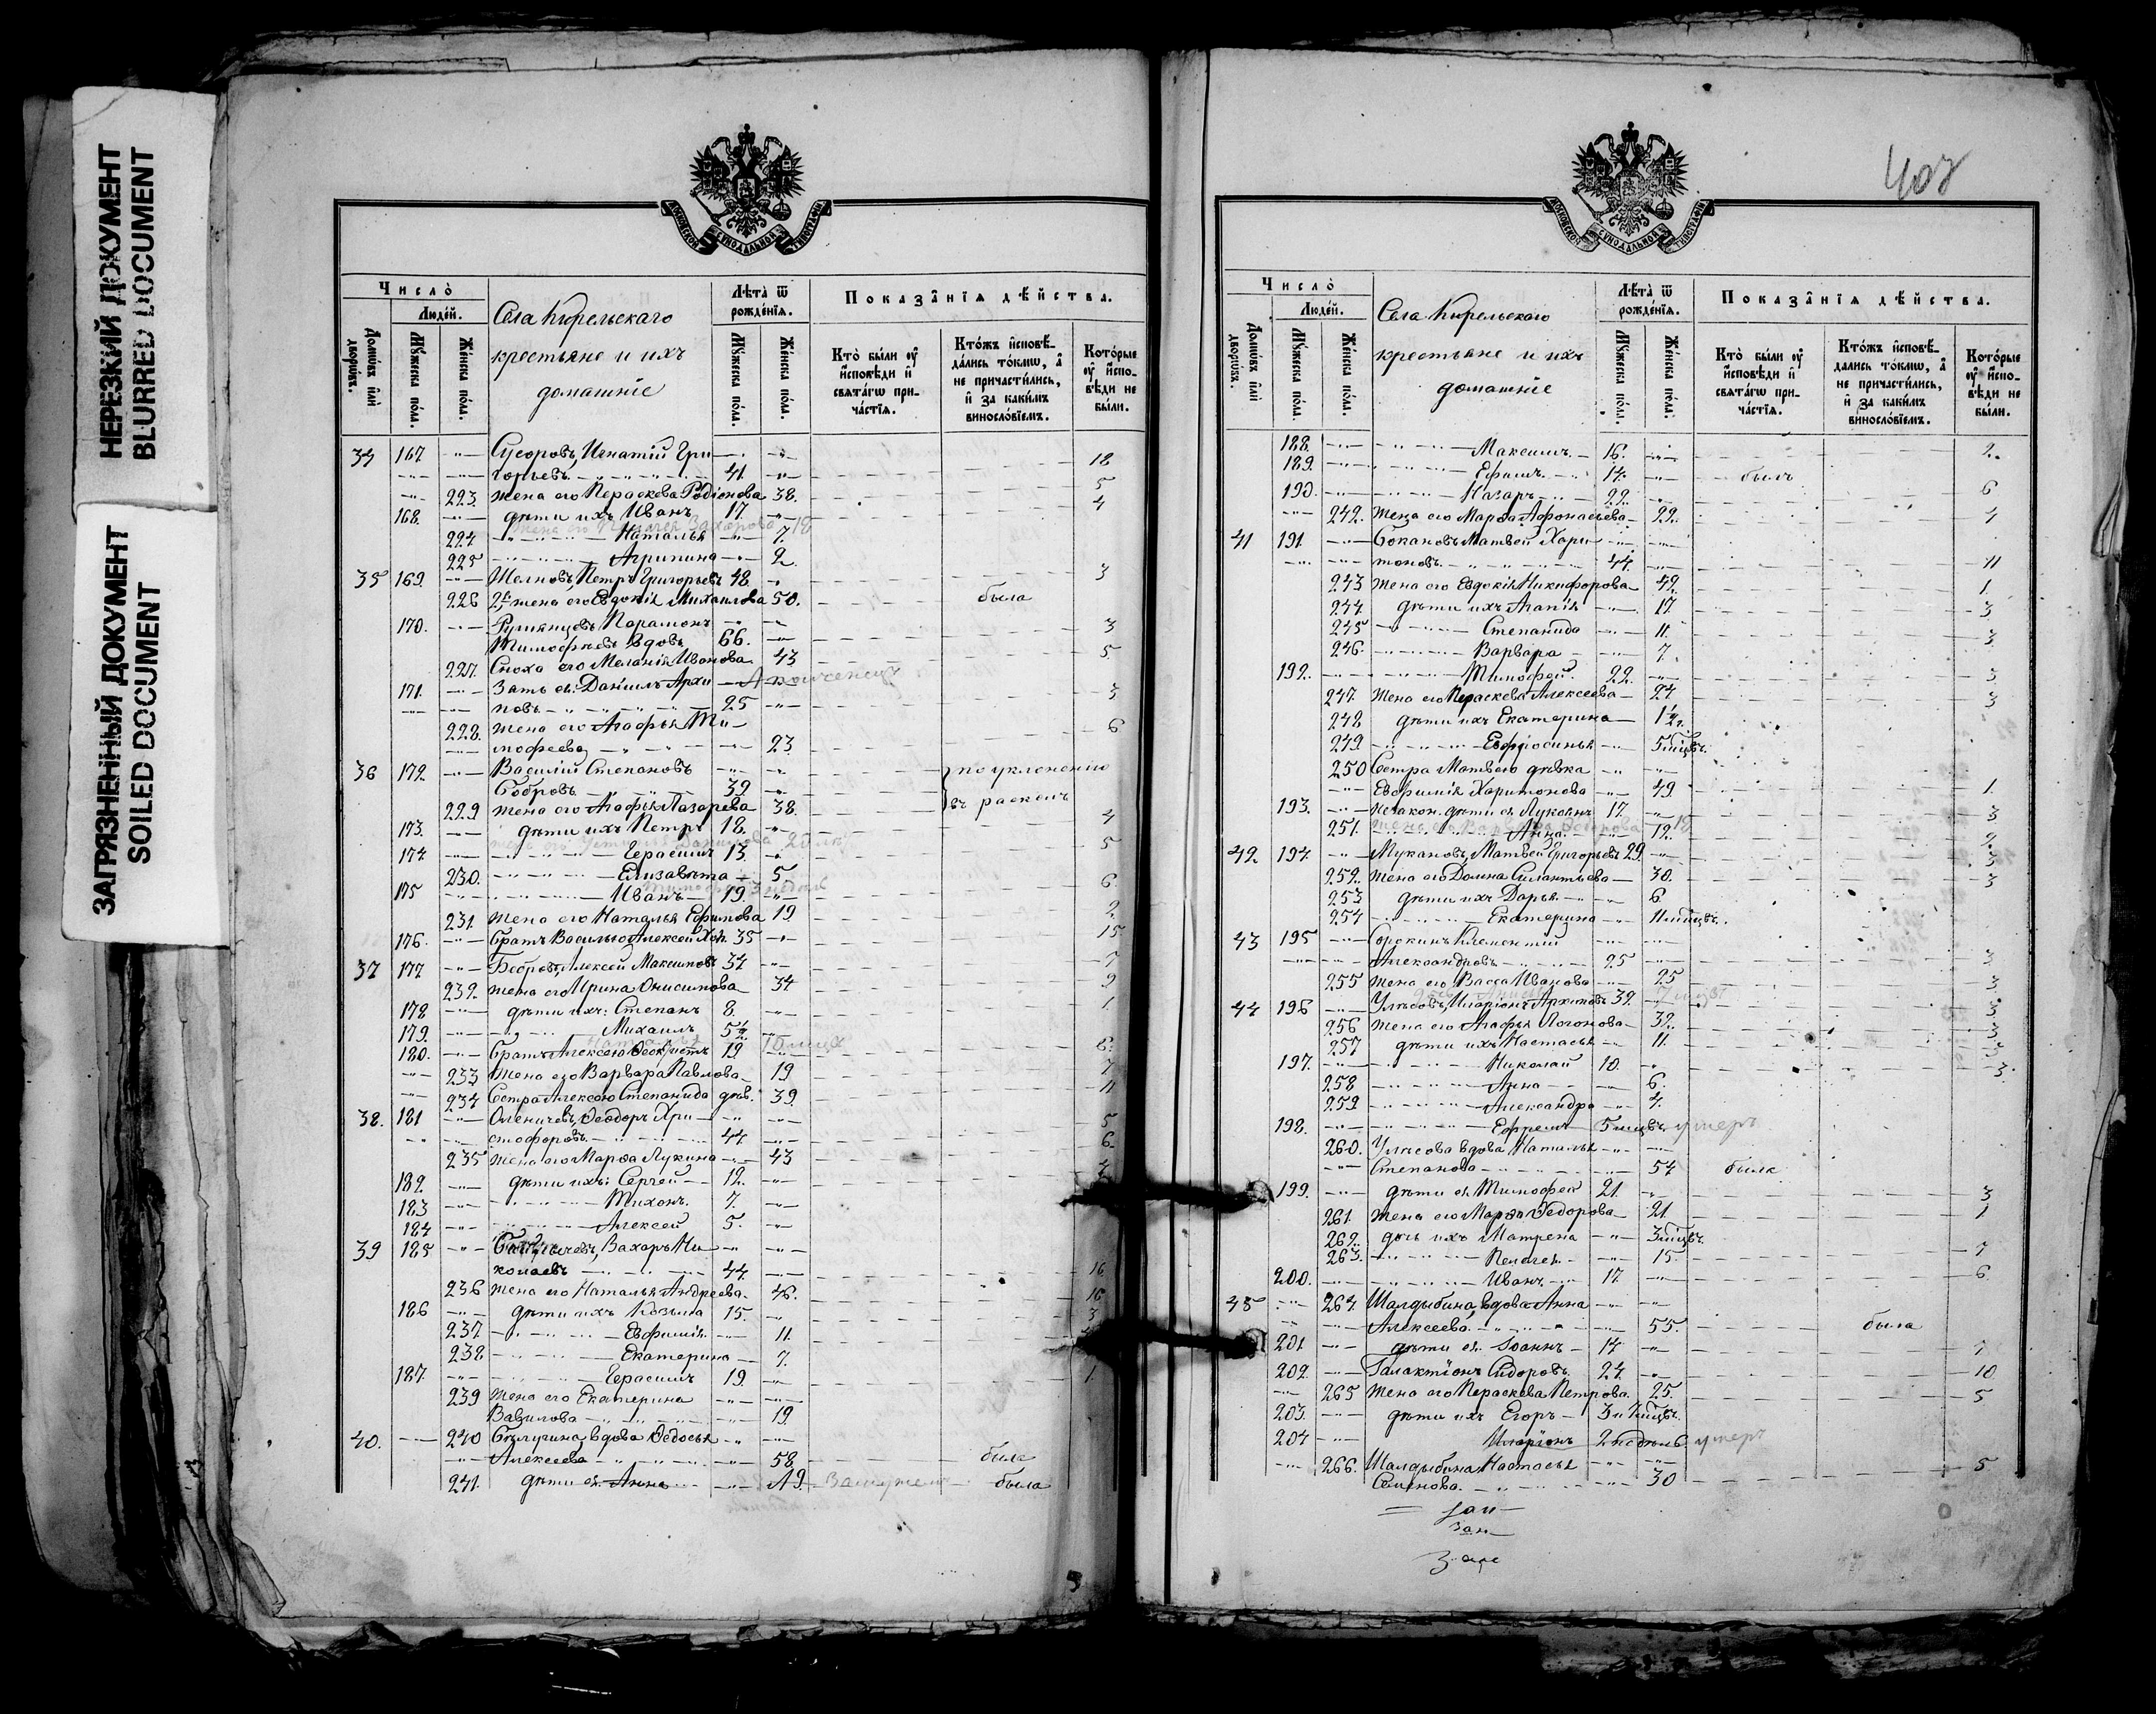 НЕРЕЗКИЙ ДОКУМЕНТ
BLURRED DOCUMENT
ЗАГРЯЗНЕННЫЙ ДОКУМЕНТ
SOILED DOCUMENT
МОСКОВСКОЙ СѴНОДАЛЬНОЙ ТИПОГРАФІИ
Число̀
Людей.
Домѡвъ или дворѡвъ.
Мꙋжеска пола.
Женска пола.
Села Кирельскаго
крестьяне и ихъ
домашніе
Лѣта ѿ рожденїѧ.
Мꙋжеска пола.
Женска пола.
Показанїѧ дѣйства.
Кто были оу исповѣди и свѧтагѡ причастїѧ.
Ктожъ исповѣдались токмѡ, а не причастились, и за какимъ винословїемъ.
Которые оу исповѣди не были.
34 167 Сусоровъ, Игнатій Гри
горьевъ 41 18
223 жена его Пераскева Родіонова 38. 5
168. дѣти ихъ Иванъ 17. 4
224 Наталья 7.
225 Агрипина 2.
35 169. Петръ Григорьевъ 48. 3
226 2я жена его Евдокія Михаилова 50. была
170. Румянцовъ Парамонъ
Тимофѣевъ вдовъ 66. 3
227. Сноха его Меланія Иванова 43 5
171. Зять ея: Даніилъ Архи
повъ 25 3
228. жена его Агафья Ти
мофеева 23 6
36 172. Василій Степановъ по уклоненію
Бобровъ 39. въ расколъ
229 жена его Агафья Лазарева 38.
173. дѣти ихъ Петръ 18. 4
174 Герасимъ 13 5
230. Елизавѣта 5
175 Иванъ 19. 6
231. жена его Наталья Ефимова 19 2
176. Братъ Василью Алексей 35 15
37 177 Бобровъ, Алексей Максимовъ 34 7
232. жена его Ирина Онисимова 34 9
178 дѣти ихъ: Степанъ 8. 1.
179. Михаилъ 5½
180. Братъ Алексею Феоктистъ 19 6.
233 жена его Варвара Павлова 19 7
234 Сестра Алексею Степанида дѣв. 39. 11
38. 181 Феодоръ Хри
стофоровъ 44 5
235 жена его Марфа Лукина 43 6
182. дѣти ихъ: Сергей 12.
183 Тихонъ. 7.
184 Алексей 5.
39 185 Захаръ Ни
колаевъ 44. 16
236 жена его Наталья Андреева 46. 16
186 дѣти ихъ Козьма 15. 3
237 Евфимія 11.
238 Екатерина 7.
187. Герасимъ 19. 1.
239 жена его Екатерина
Вавилова 19.
40. 240 вдова Федосья
Алексеева 58. была
241. дѣти ея Анна 19. Замужемъ была
407
МОСКОВСКОЙ СѴНОДАЛЬНОЙ ТИПОГРАФІИ
Число̀
Людей.
Домѡвъ или дворѡвъ.
Мꙋжеска пола.
Женска пола.
Села Кирельскаго
крестьяне и ихъ
домашніе
Лѣта ѿ рожденїѧ.
Мꙋжеска пола.
Женска пола.
Показанїѧ дѣйства.
Кто были оу исповѣди и свѧтагѡ причастїѧ.
Ктожъ исповѣдались токмѡ, а не причастились, и за какимъ винословїемъ.
Которые оу исповѣди не были.
188. Максимъ 16. 2.
189. Ефимъ 14. былъ
190. Назаръ 22. 6
242. жена его Марфа Афонасьева 22. 4
41 191. Бокановъ Матвей Хари
тоновъ 44. 11
243 жена его Евдокія Никифорова 42. 1.
244 дѣти ихъ Агапія 17. 3
245 Степанида 11. 3
246 Варвара 7.
192. Тимофей. 22. 3
247. жена его Пераскева Алексеева 24 3
248 дѣти ихъ Екатерина 1½
249 Евфросинья 5 мцвъ.
250 Сестра Матвею дѣвка
Евфимія Харитонова 49. 1.
193. незакон. дѣти ея Лукіанъ 17. 3
251. Анна 12. 2.
42. 194. Мукановъ, Матвей Григорьевъ 29. 3
252. жена его Домна Силантьева 30. 3
253 дѣти ихъ Дарья 6.
254 Екатерина 11 мцвъ.
43 195 Сорокинъ Климентій
Александровъ 25 3
255 жена его Васса Иванова 25 3.
44 196 Иларіонъ Архиповъ 32. 3
256 жена его Агафья Логонова 32. 3.
257 дѣти ихъ Настасья 11. 3
197. Николай 10. 3.
258 Анна 6.
259 Александра 4.
198. Ефремъ 5 мцвъ. умеръ
260. вдова Наталья
Степанова 54 была
199. дѣти ея Тимофей 21. 3
261. жена его Марфа Федорова 21. 1
262. дочь ихъ Матрена 3 мцвъ.
263. Пелагея 15. 7
200. Иванъ 17. 6
45 264. Шалдыбина, вдова Анна
Алексеева 55. была
201. дѣти ея Іоаннъ 14 7
202. Галактіонъ Сидоровъ 24. 10
265 жена его Пераскева Петрова. 25. 5
203. дѣти ихъ Егоръ
204 Иларіонъ 2 недѣль умеръ
266. Шалдыбина, Настасья 5
Семенова. 30